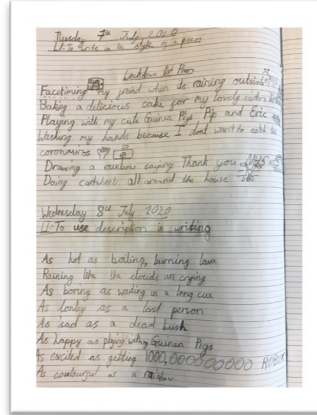 Tuesday 7th July 2020
LI: To write in the style of a poem
Lockdown List Poem
Facetiming my friend when its raining outside
Baking a delicious cake for my lovely
Playing with my cute Guinea Pigs Pip and Eric
Washing my hands because I dont want to catch the
coronavirus
Drawing a rainbow saying Thank you NHS
Doing cartwheels all around the house
Wednesday 8th July 2020
LI: To use description in writing
As hot as boiling, burning lava
Raining like the clouds are crying
As boring as waiting in a long cue
As lonely as a lost person
As sad as a dead bush
As happy as playing with my Guinea Pigs
As excited as getting 1000,000000000
As colourful as a rainbow